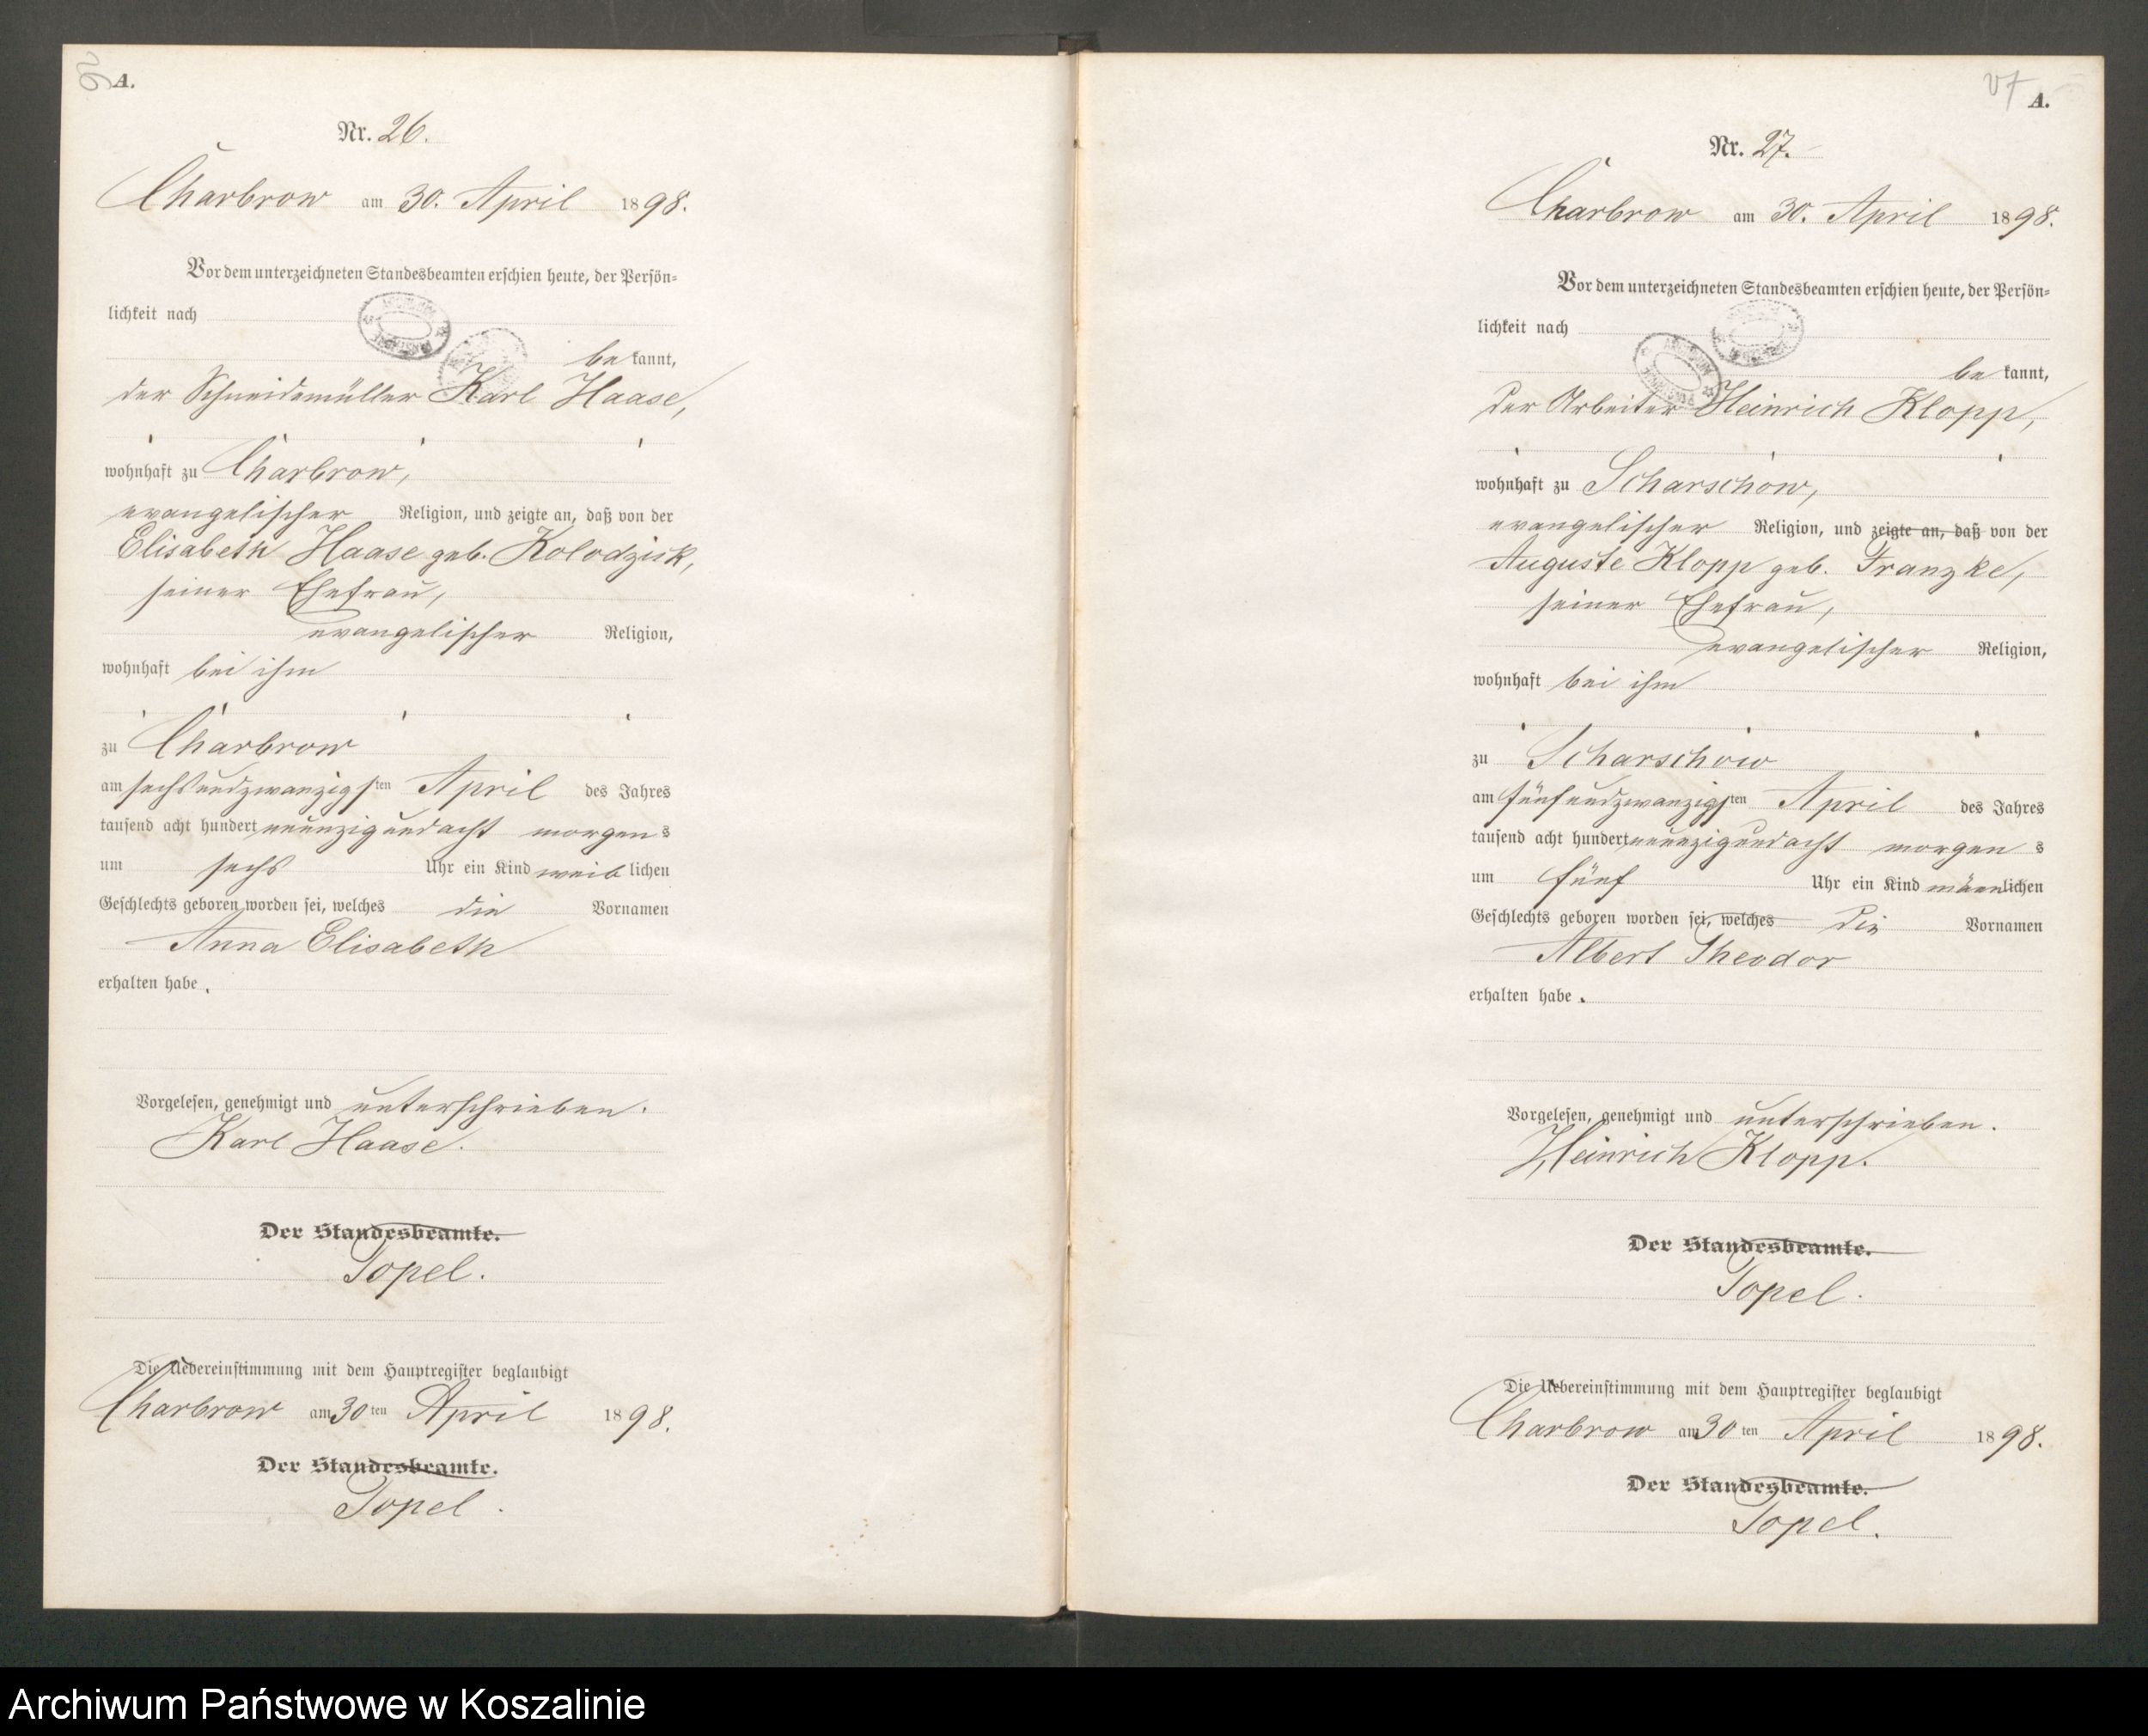 A.
Nr. 26.
Charbrow am 30. April 1898.
Vor dem unterzeichneten Standesbeamten erschien heute, der Persön=
lichkeit nach
bekannt,
der Schneidemüller Karl Haase,
wohnhaft zu Charbrow,
evangelischer Religion, und zeigte an, daß von der
Elisabeth Haase geb. Kolodzick,
seiner Ehefrau,
evangelischer Religion,
wohnhaft bei ihm
zu Charbrow
am sechsundzwanzigsten April des Jahres
tausend acht hundert neunzigundacht morgens
um sechs Uhr ein Kind weiblichen
Geschlechts geboren worden sei, welches die Vornamen
Anna Elisabeth
erhalten habe.
Vorgelesen, genehmigt und unterschrieben.
Karl Haase.
Der Standesbeamte.
Topel.
Die Uebereinstimmung mit dem Hauptregister beglaubigt
Charbrow am 30ten April 1898.
Der Standesbeamte.
Topel.
A.
Nr. 27.
Charbrow am 30. April 1898.
Vor dem unterzeichneten Standesbeamten erschien heute, der Persön=
lichkeit nach
bekannt,
der Arbeiter Heinrich Klopp,
wohnhaft zu Scharschow,
evangelischer Religion, und zeigte an, daß von der
Auguste Klopp geb. Franzke,
seiner Ehefrau,
evangelischer Religion,
wohnhaft bei ihm
zu Scharschow
am fünfundzwanzigsten April des Jahres
tausend acht hundert neunzigundacht morgens
um fünf Uhr ein Kind männlichen
Geschlechts geboren worden sei, welches die Vornamen
Albert Theodor
erhalten habe.
Vorgelesen, genehmigt und unterschrieben.
Heinrich Klopp.
Der Standesbeamte.
Topel.
Die Uebereinstimmung mit dem Hauptregister beglaubigt
Charbrow am 30ten April 1898.
Der Standesbeamte.
Topel.
Archiwum Państwowe w Koszalinie